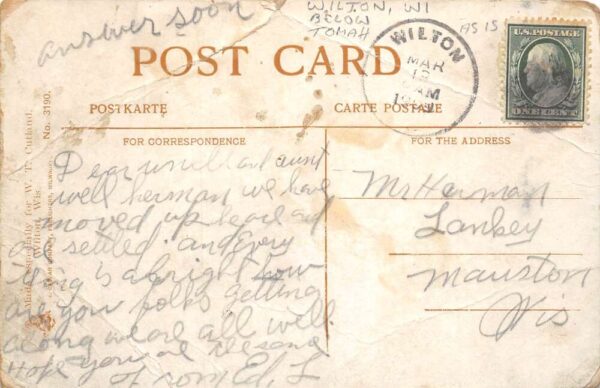 answer soon
WILTON, WI
BELOW
TOMAH
AS IS
WILTON
MAR
12
AM
U.S. POSTAGE
ONE CENT
POST CARD
POSTKARTE
CARTE POSTALE
FOR CORRESPONDENCE
FOR THE ADDRESS
Dear and aunt
well herman we have
moved up heare and
are settled. and every
thing is alright how
are you folks getting
along we are all well.
Hope you are the same
from Ed, L
Mr Herman
Lankey
Mauston
Wis
for W. T. Cutland,
Wilton Wis.
No. 3190.